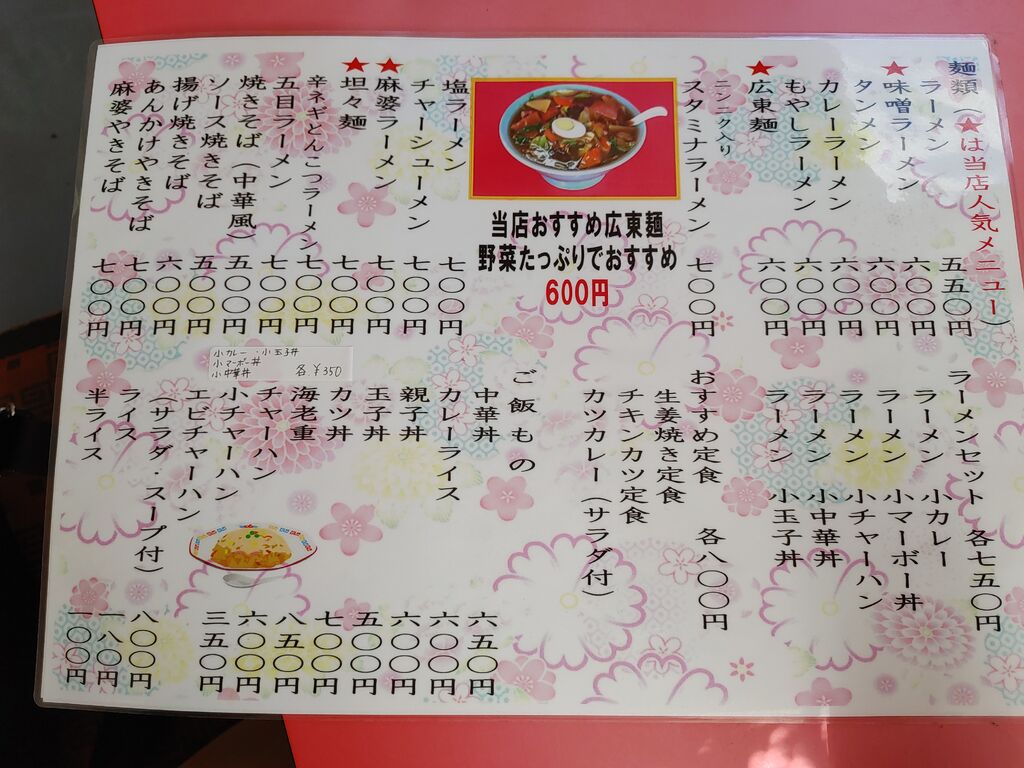 麺類(★は当店人気メニュー)
ラーメン 五五〇円
★味噌ラーメン 六〇〇円
タンメン 六〇〇円
カレーラーメン 六〇〇円
もやしラーメン 六〇〇円
★広東麺 六〇〇円
ニンニク入り
スタミナラーメン 七〇〇円
当店おすすめ広東麺
野菜たっぷりでおすすめ
600円
塩ラーメン 七〇〇円
チャーシューメン 七〇〇円
★麻婆ラーメン 七〇〇円
★坦々麺 七〇〇円
辛ネギとんこつラーメン 七〇〇円
五目ラーメン 七〇〇円
焼きそば(中華風) 五〇〇円
ソース焼きそば 五〇〇円
揚げ焼きそば 六〇〇円
あんかけやきそば 七〇〇円
麻婆やきそば 七〇〇円
ラーメンセット 各七五〇円
ラーメン 小カレー
ラーメン 小マーボー丼
ラーメン 小チャーハン
ラーメン 小中華丼
ラーメン 小玉子丼
おすすめ定食 各八〇〇円
生姜焼き定食
チキンカツ定食
カツカレー(サラダ付)
ご飯もの
中華丼 六五〇円
カレーライス 六〇〇円
親子丼 六〇〇円
玉子丼 五〇〇円
カツ丼 七〇〇円
海老重 八五〇円
チャーハン 六〇〇円
小チャーハン 三五〇円
エビチャーハン
(サラダ・スープ付) 八〇〇円
ライス 一八〇円
半ライス 一〇〇円
小カレー・小玉子丼
小マーボー丼
小中華丼 各¥350